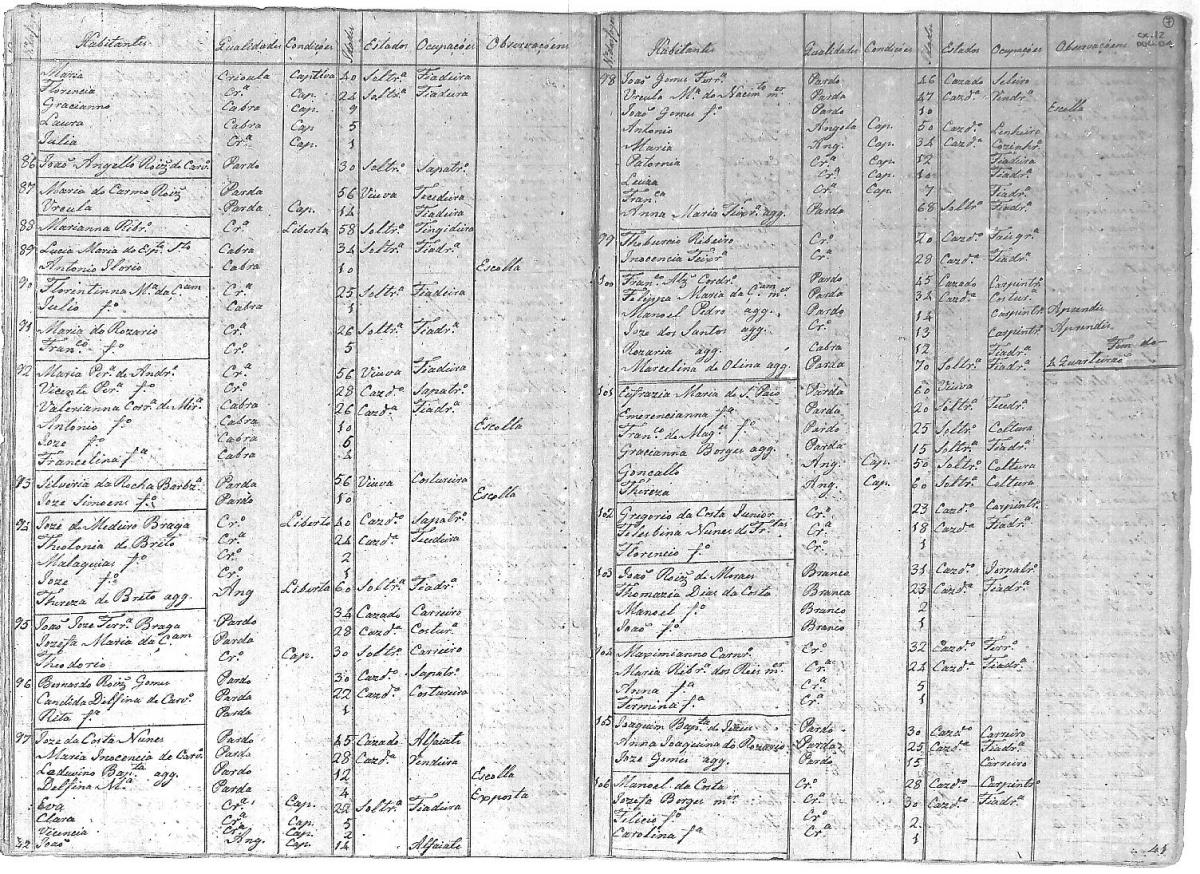 Nº dos fogos Habitantes Qualidades Condições Idades Estados Ocupações Observações
Maria Crioula Captiva 40 Soltrª Fiadeira
Florencia Crª Cap. 22 Soltrª Fiadeira
Gracianno Cabra Cap. 9
Laura Cabra Cap. 5
Julia Crª Cap. 1
86 Joaõ Angello Roiz de Carvº Pardo 30 Soltrº Sapatrº
87 Maria do Carmo Roiz Parda 56 Viuva Tecedeira
Urcula Parda Cap. 14 Fiadeira
88 Marianna Ribrº Crª Liberta 58 Soltrª Tingideira
89 Lucia Maria do Espº Stº Cabra 34 Soltrª Fiadrª
Antonio Ilorio Cabra 10 Escolla
90 Florentinna Mª da Cam Crª 25 Soltrª Fiadeira
Julio fº Cabra 1
91 Maria do Rozario Crª 26 Soltrª Fiadrª
Franco fº Crº 5
92 Maria Perª de Andrº Crª 56 Viuva Fiadeira
Vicente Perª fº Crº 28 Cazdº Sapatrº
Valerianna Corrª de Mirª Cabra 26 Cazdª Fiadrª
Antonio fº Cabra 10 Escolla
Joze fº Cabra 5
Francelina fª Cabra
93 Silviria da Rocha Barbzª Parda 56 Viuva Costureira
Joze Simoens fº Pardo 10 Escolla
94 Joze de Medeiro Braga Crº Liberto 40 Cazdº Sapatrº
Theotonia de Brito Crª 24 Cazdª Tecedeira
Malaquias fº Crº 2
Joze fº Crº 1
Thereza de Brito agg. Ang Liberta 60 Soltrª Fiadrª
95 Joaõ Joze Ferrª Braga Pardo 34 Cazado Carreiro
Jozefa Maria da Cam Parda 28 Cazdª Costurª
Theodorio Crº Cap. 30 Soltrº Carreiro
96 Bernardo Roiz Gomes Pardo 30 Cazdº Sapatrº
Candida Delfina de Carvº Parda 22 Cazdª Costureira
Rita fª Parda 1
97 Joze da Costa Nunes Pardo 45 Cazado Alfaiate
Maria Inocencia de Carvº Parda 28 Cazdª Vendeira
Laduvino Bapta agg. Pardo 12 Escolla
Delfina Mª Parda 4 Exposta
Eva Crª Cap. 22 Soltrª Fiadeira
Clara Crª Cap. 5
Vicencia Crª Cap. 2
Joaõ Ang. Cap. 14 Alfaiate
Nº dos fogos Habitantes Qualidades Condições Idades Estados Ocupações Observações
7
cx.12
98 Joaõ Gomes Ferrª Pardo 46 Cazado Seleiro
Urcula Mª do Nacimto mer Parda 47 Cazdª Vendrª
Joaõ Gomes fº Pardo 10 Escolla
Antonio Angola Cap. 50 Cazdº Lenheiro
Maria Ang. Cap. 34 Cazdª Cozinhrª
Patornia Crª Cap. 12 Fiadeira
Luiza Crª Cap. 10 Fiadrª
Franca Crª Cap. 7 Fiadrª
Anna Maria Teixrª agg. Parda 68 Soltrª Fiadrª
99 Theburcio Ribeiro Crº 20 Cazdº
Inocencia Teixrª Crª 28 Cazdª Fiadrª
100 Franco Alz Cordrº Pardo 45 Cazado Carpintrº
Felippa Maria da Cam mer Parda 34 Cazdª Costurª
Manoel Pedro agg. Pardo 14 Carpintrº Aprendis
Joze dos Santos agg. Crº 13 Carpintrº Aprendis
Rozaria agg. Cabra 12 Fiadrª Fim do
Marcelina de Olina agg. Parda 70 Soltrª Fiadrª 2 Quarteiraõ
101 Eufrazia Maria de S. Paio Parda 60 Viuva
Emerencianna fª Parda 20 Soltrª Tecedrª
Franco de Mages fº Pardo 25 Soltrº Coltura
Gracianna Borges agg. Parda 15 Soltrª Fiadrª
Goncallo Ang. Cap. 50 Soltrº Coltura
Thereza Ang. Cap. 60 Soltrª Coltura
102 Gregorio da Costa Junior Crº 23 Cazdº Carpintrº
Felesbina Nunes de Frtas Crª 18 Cazdª Fiadrª
Florencio fº Crº 1
103 Joaõ Roiz de Moraes Branco 31 Cazdº Jornalrº
Thomazia Dias da Costa Branca 23 Cazdª Fiadrª
Manoel fº Branco 2
Joaõ fº Branco 1
104 Maximianno Carnrº Crº 32 Cazdº Ferrº
Maria Ribrº dos Reis mer Crª 24 Cazdª Fiadrª
Anna fª Crª 5
Fermina fª Crª 1
105 Joaquim Bapta de Jezus Pardo 30 Cazdº Carreiro
Anna Joaquina do Rozario Parda 25 Cazdª Fiadrª
Joze Gomes agg. Pardo 15 Carreiro
106 Manoel da Costa Crº 28 Cazdº Carpintrº
Jozefa Borges mer Crª 30 Cazdª Fiadrª
Felicio fº Crº 2
Carolina fª Crª 1